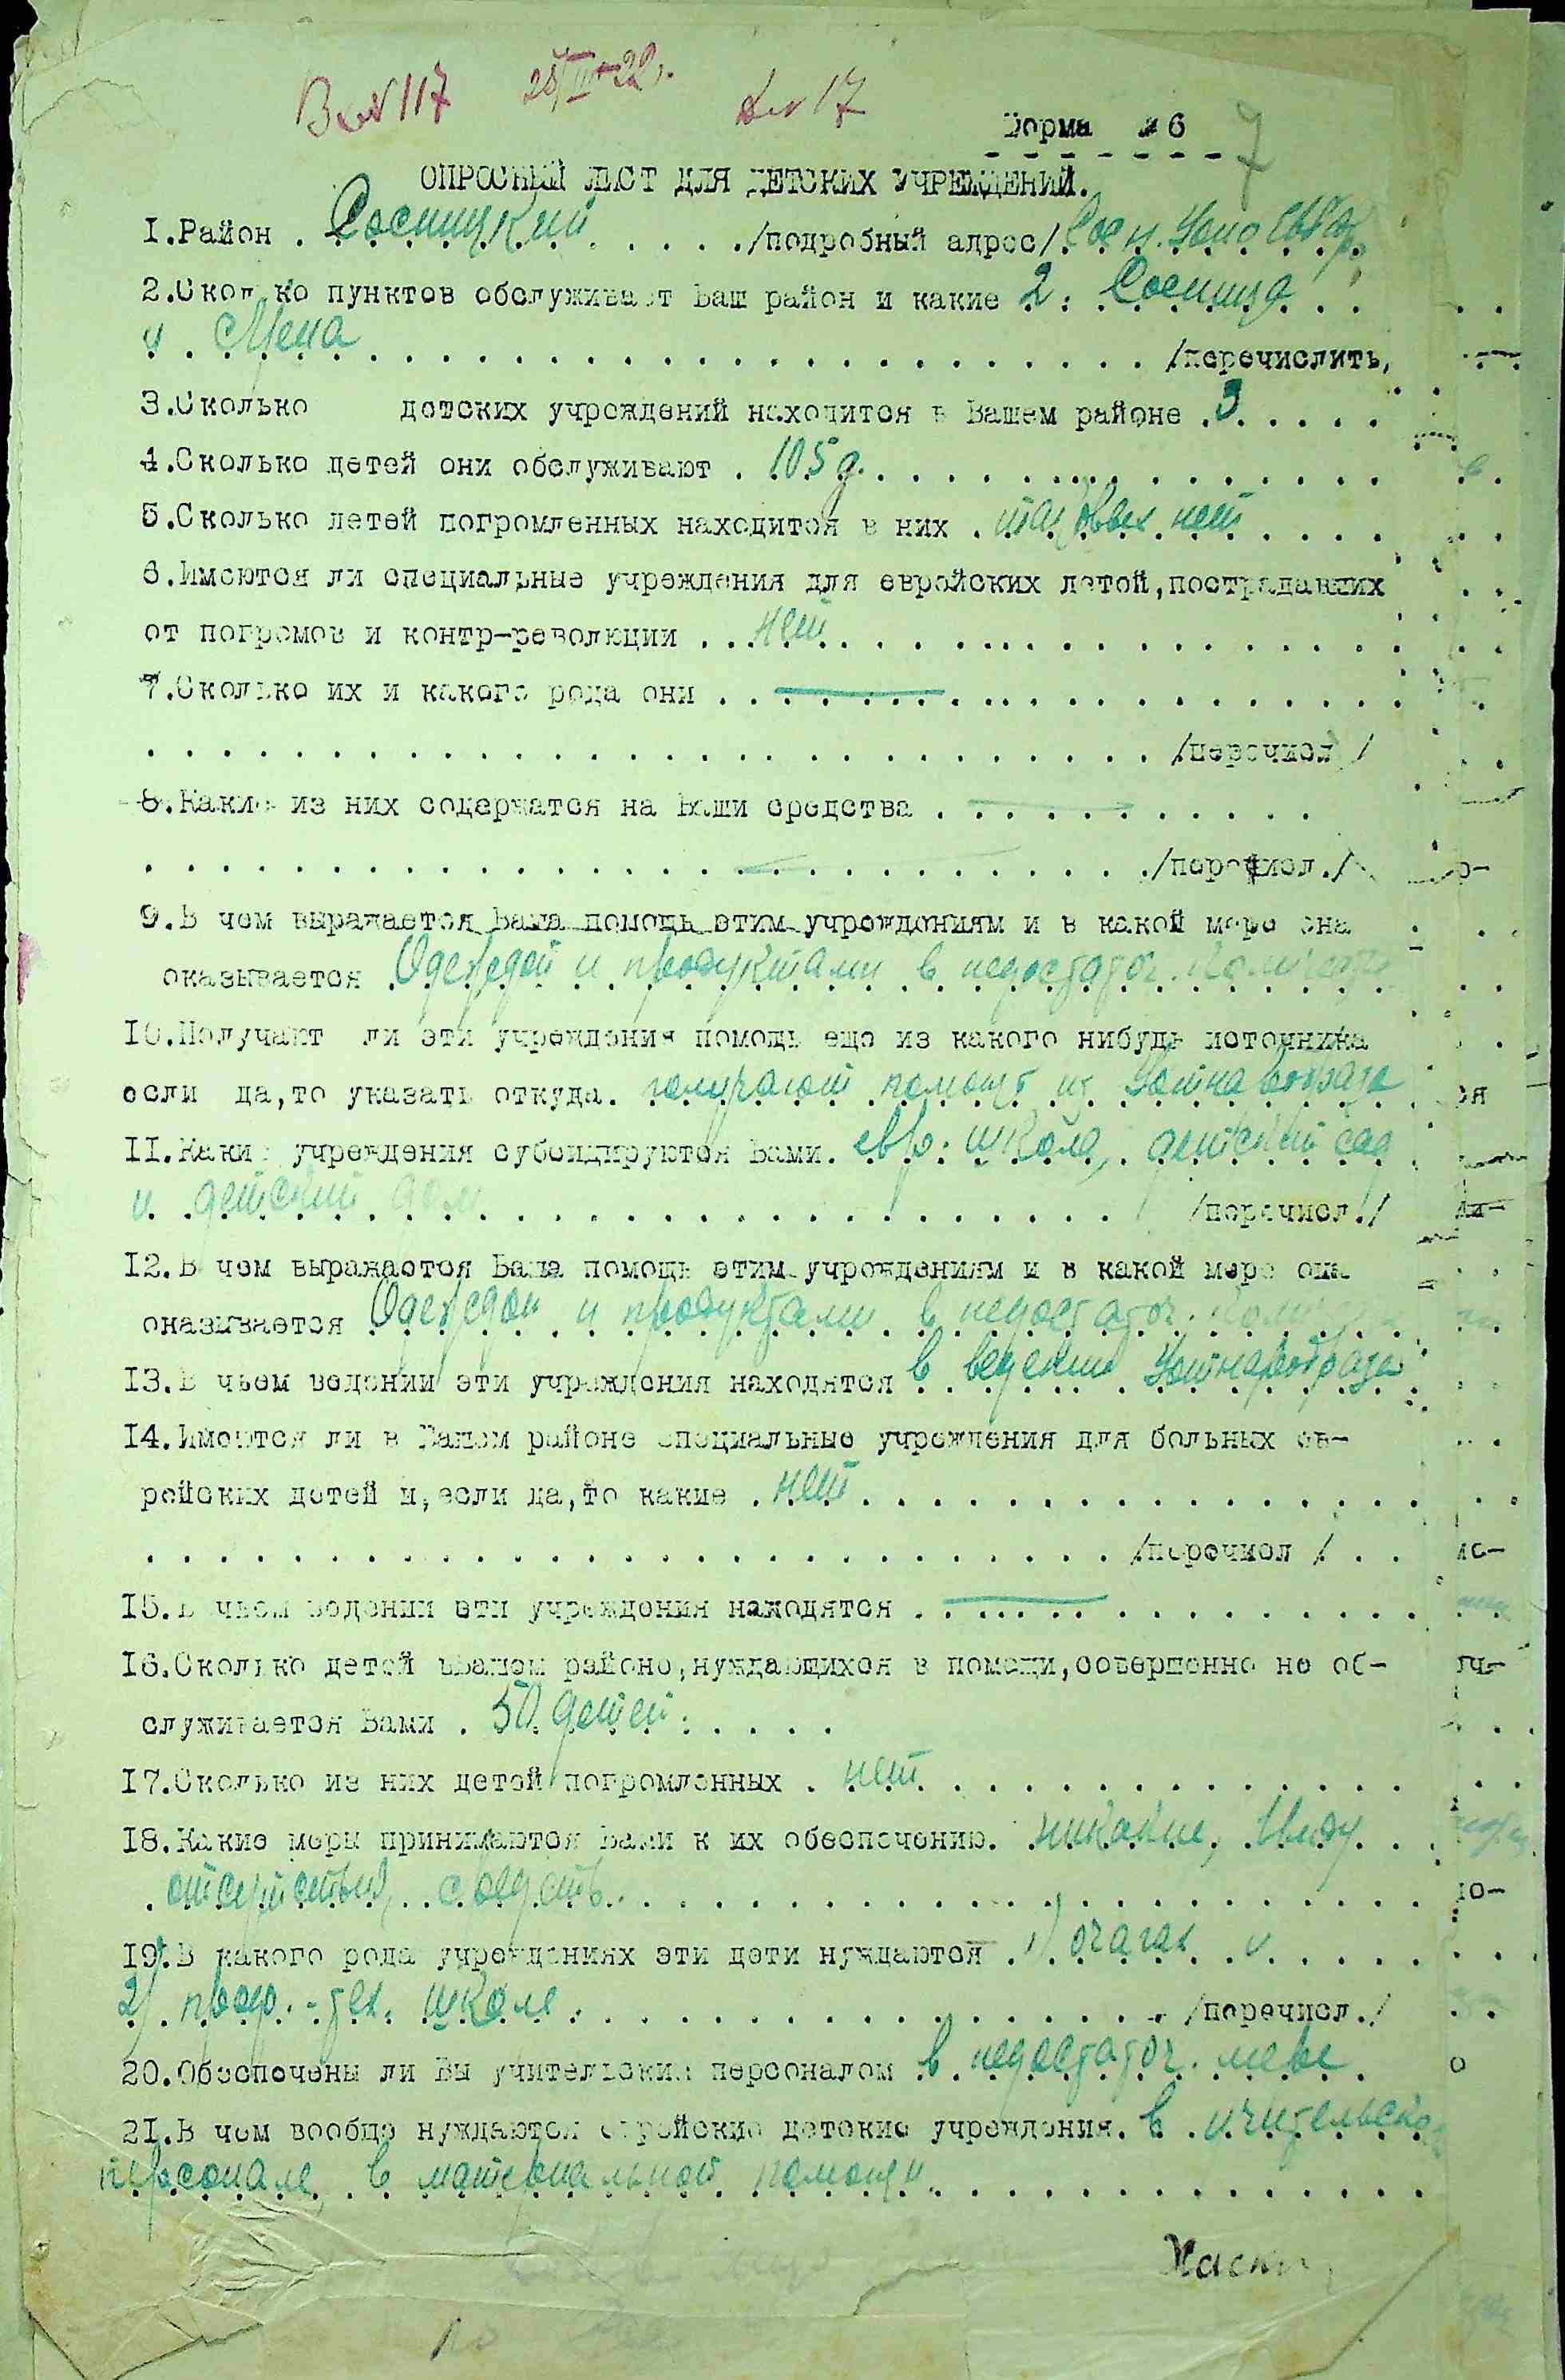 Вх № 117 28/IV-22 г. 17
Форма № 6
7
ОПРОСНЫЙ ЛИСТ ДЛЯ ДЕТСКИХ УЧРЕЖДЕНИЙ.
I.Район . Сосницкий . . . . ./подробный адрес/
2.Сколько пунктов обслуживает Ваш район и какие 2. Сосница
и Мена . . . . . . . . . . /перечислить,
3.Сколько детских учреждений находится в Вашем районе . 3 . . . . .
4.Сколько детей они обслуживают . 105 д. . . . . . . . .
5.Сколько детей погромленных находится в них . таковых нет . . . .
6.Имеются ли специальные учреждения для еврейских детей,пострадавших
от погромов и контр-революции . . нет . . . . . . . .
7.Сколько их и какого рода они . . — . . . . . . . .
. . . . . . . . . . . . /перечисл /
8.Какие из них содержатся на Ваши средства . . . . . . . .
. . . . . . . . . . . . /перечисл./
9.В чем выражается Ваша помощь этим учреждениям и в какой мере она
оказывается Одеждой и продуктами в недостаточ. количестве
10.Получают ли эти учреждения помощь еще из какого нибудь источника
если да,то указать откуда. получают помощь из Уотнаробраза
II.Какие учреждения субсидируются Вами. евр. школа, детский сад
и детский дом . . . . . . . . /перечисл./
12.В чем выражается Ваша помощь этим учреждениям и в какой мере она
оказывается Одеждой и продуктами в недостаточ.
13.В чьем ведении эти учреждения находятся в ведении Уотнаробраза
14.Имеются ли в Вашем районе специальные учреждения для больных ев-
рейских детей и,если да,то какие . нет . . . . . . . .
. . . . . . . . . . . . /перечисл / . .
15.В чьем ведении эти учреждения находятся . . — . . . . . .
16.Сколько детей в Вашем районе,нуждающихся в помощи,совершенно не об-
служивается Вами . 50 детей . . . . .
17.Сколько из них детей погромленных . нет . . . . . . . .
18.Какие меры принимаются Вами к их обеспечению. никакие, ввиду
. отсутствия средств. . . . . . . . . .
19.В какого рода учреждениях эти дети нуждаются . 1) очагах и
2) проф.-тех. школе. . . . . . . . /перечисл./
20.Обеспечены ли Вы учительским персоналом в недостаточ. мере
21.В чем вообще нуждаются еврейские детские учреждения. в учительском
персонале, в материальной помощи. . . . . . . .